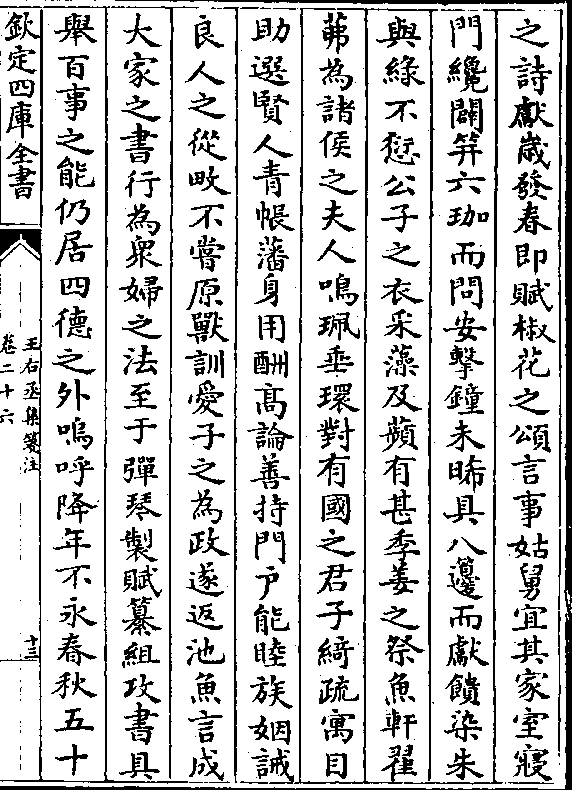 之詩獻歳發春即賦椒花之頌言事姑舅宜其家室寢
門纔闢笄六珈而問安擊鐘未晞具八籩而獻饋染朱
與緣不愆公子之衣采藻及蘋有甚季姜之祭魚軒翟
茀為諸侯之夫人鳴珮垂環對有國之君子綺疏寓目
助選賢人青帳藩身用酬髙論善持門戶能睦族姻誡
良人之從畋不嘗原獸訓愛子之為政遂返池魚言成
大家之書行為衆婦之法至于彈琴製賦纂組攻書具
舉百事之能仍居四德之外嗚呼降年不永春秋五十
欽定四庫全書
王右丞集箋注
卷二十六
十三